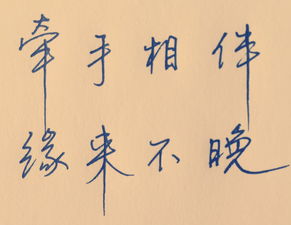 牵手相伴
缘来不晚